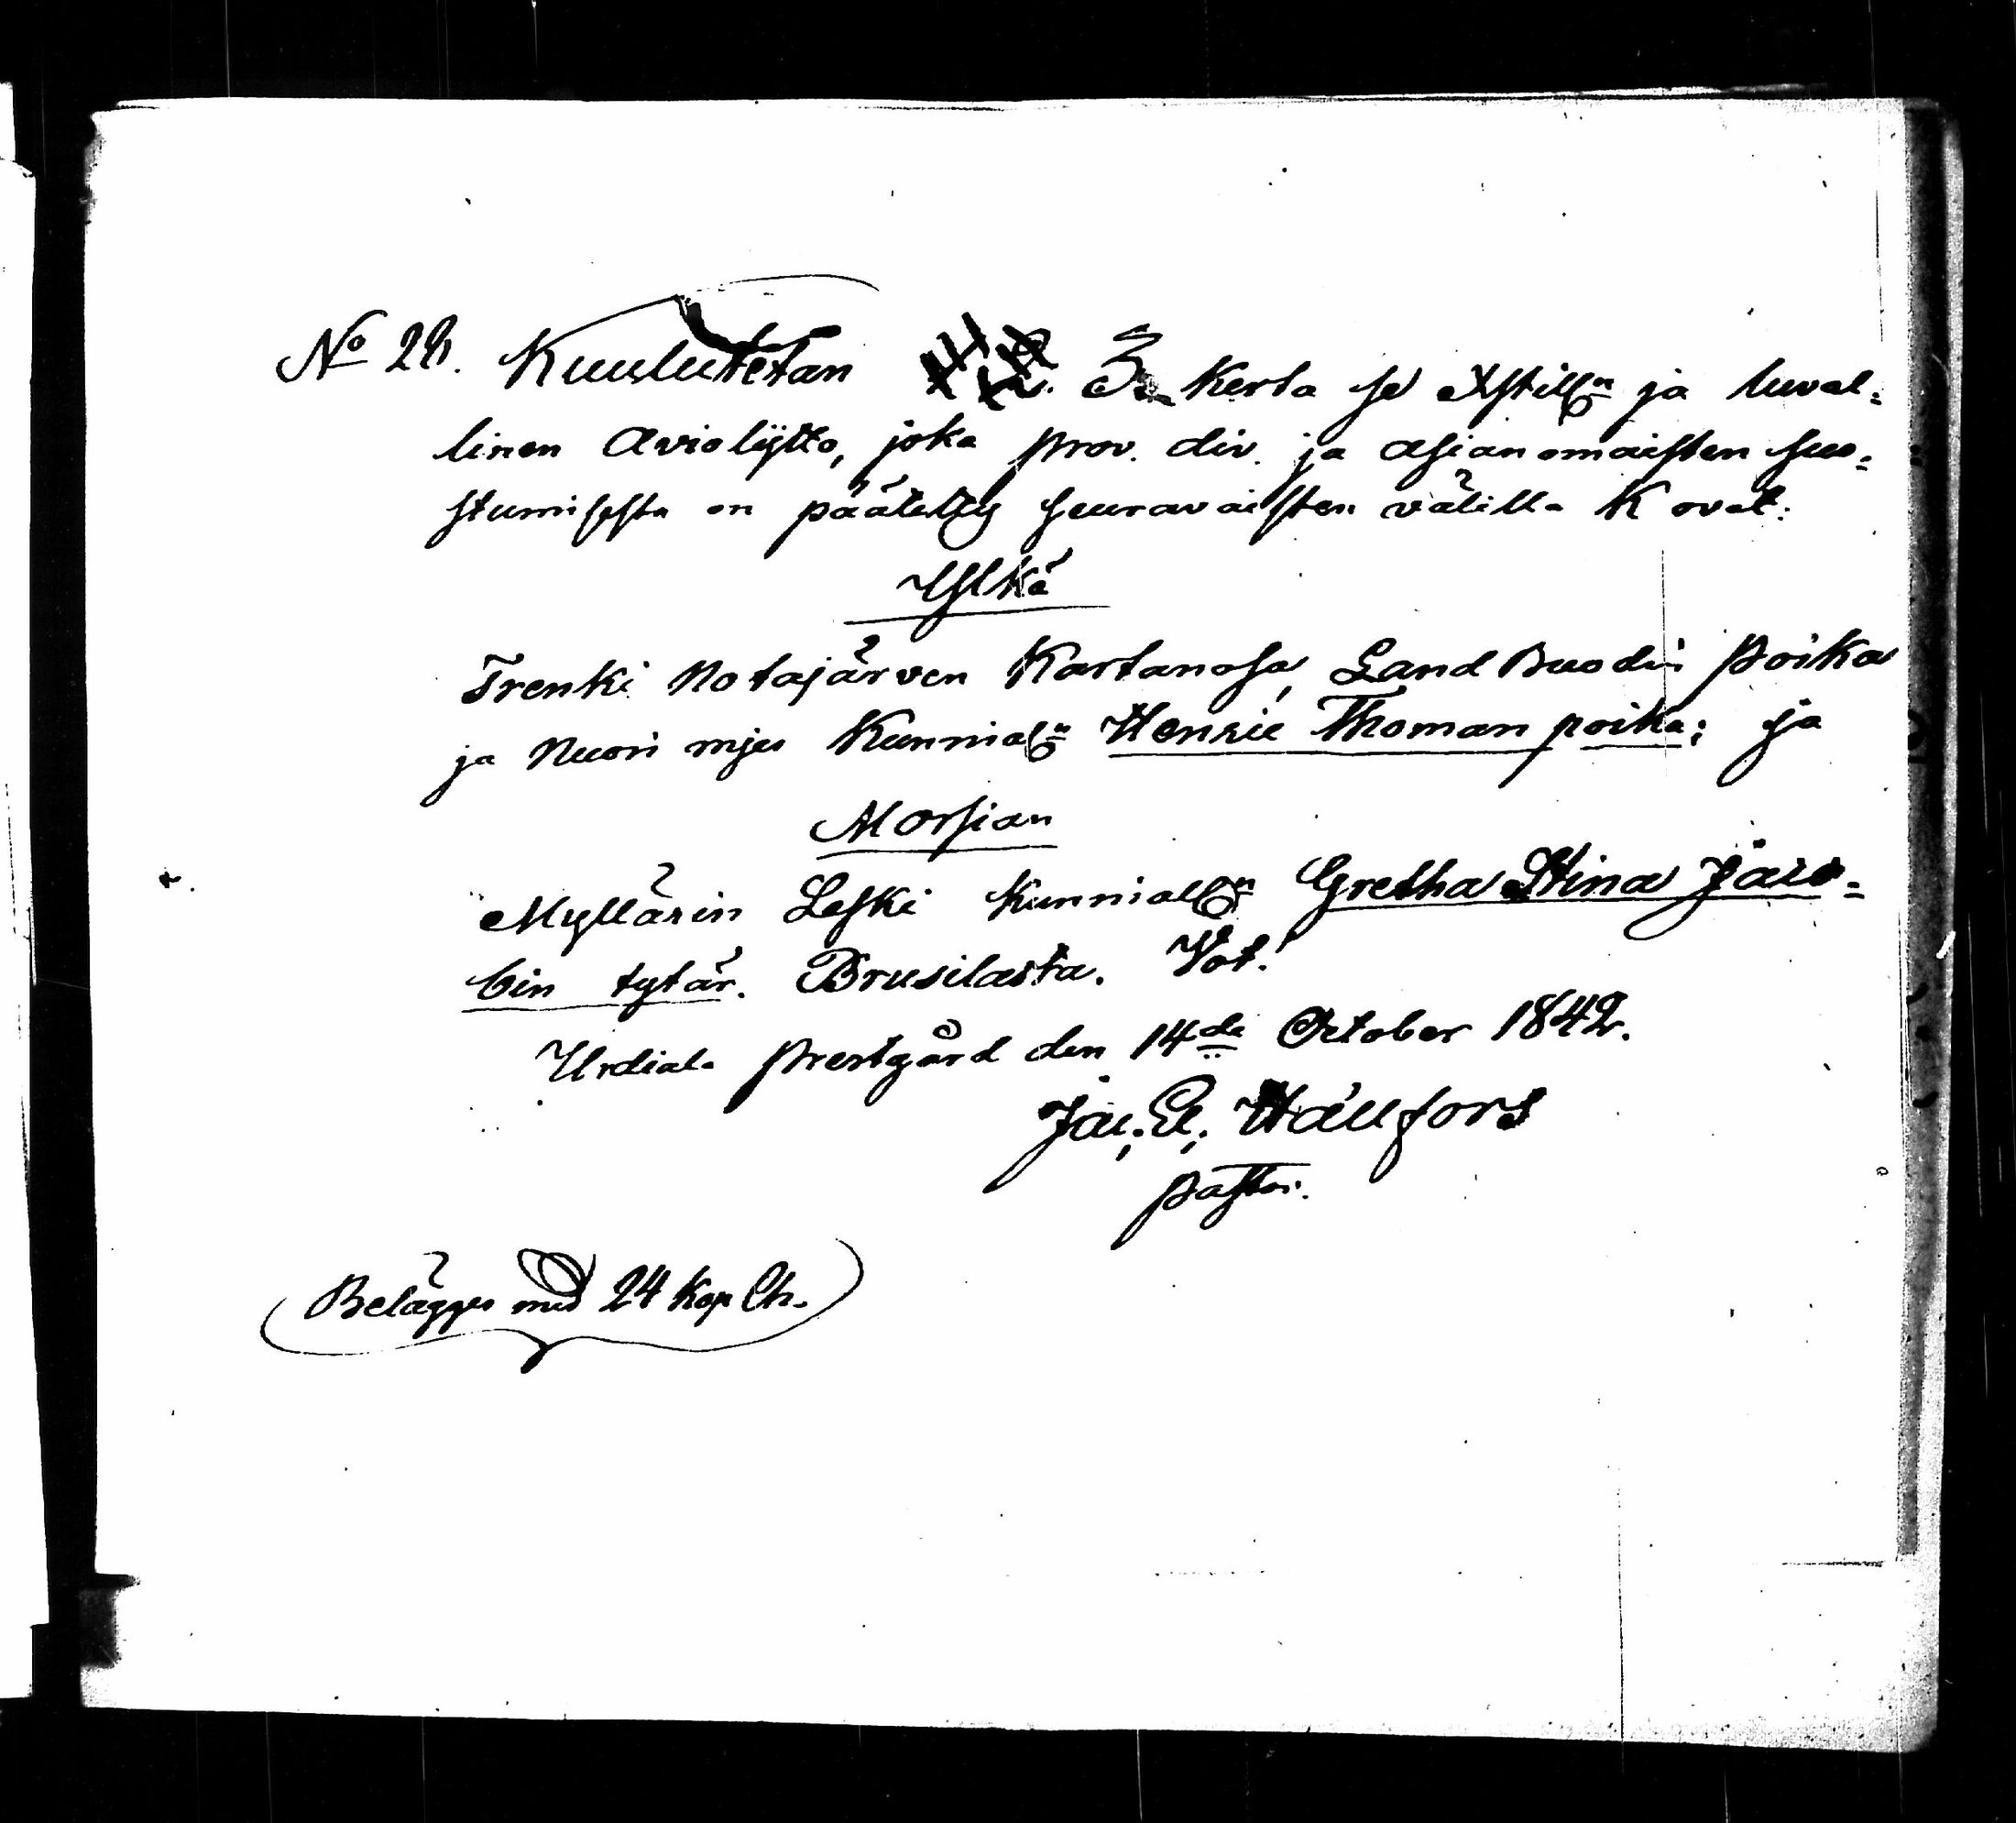 No 28. Kuulutetan 3. Kerta se Xstilln ja luval=
linen Aviolijtto, joka prov. div. ja asianomaisten suo=
stumisesta on päätetty seuravaisten välillä Kovat:
Ylkä
Trenki Notajärven Kartanosa, Land Buodin poika
ja Nuori mjes Kunnialn Henric Thoman poika; ja
Morsian
Myllärin Leski Kunnialln Gretha Stina Jaco=
bin tytär. Brusilasta. Vot!
Urdiala prestgård den 14de October 1842.
Jac. Hällfors
pastor.
Belägges med 24 Kop Ch.